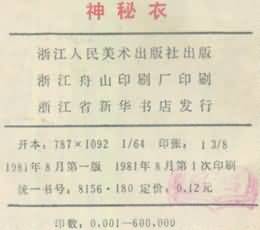 神秘衣
浙江人民美术出版社出版
浙江舟山印刷厂印刷
浙江省新华书店发行
开本：787×1092 1/64 印张：1 3/8
1981年8月第一版 1981年8月第1次印刷
统一书号：8156·180 定价：0.12元
印数：0,001—600,000